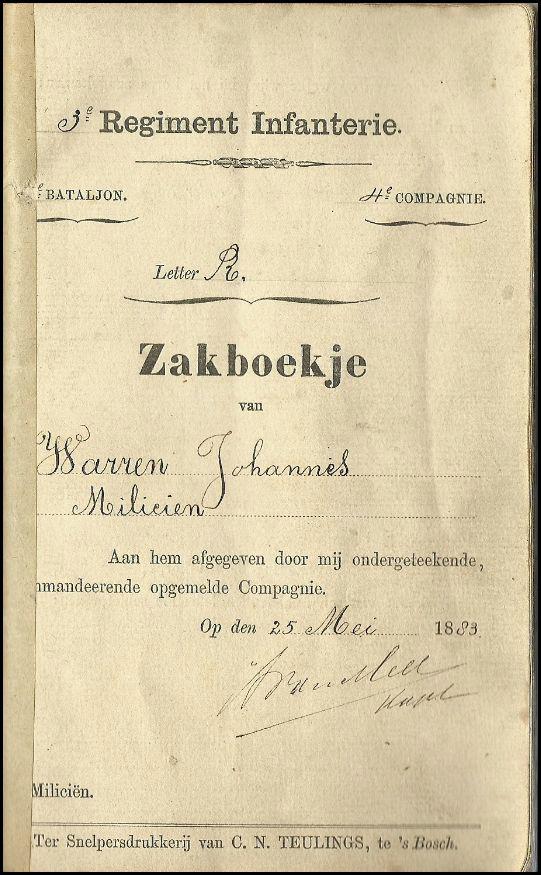 3e Regiment Infanterie.
e BATALJON. 4e COMPAGNIE.
Letter R.
Zakboekje
van
Warren Johannes
Milicien
Aan hem afgegeven door mij ondergeteekende,
mmandeerende opgemelde Compagnie.
Op den 25 Mei 1883
Kapt
Miliciën.
Ter Snelpersdrukkerij van C. N. TEULINGS, te 's Bosch.